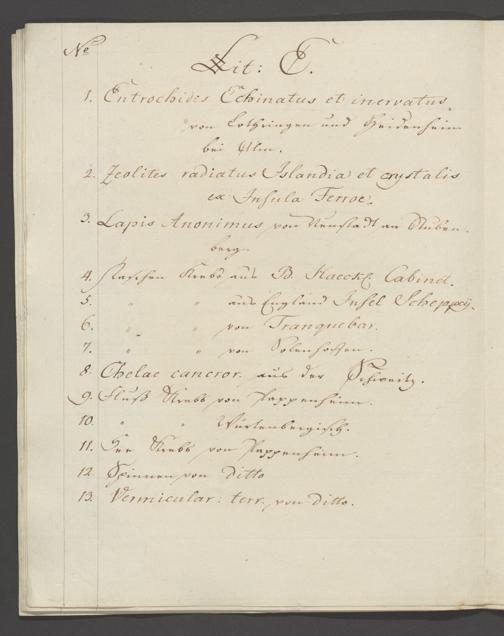 No
Lit: E.
1. Entrochides Echinatus et inervatus,
von Lothringen und Heidenheim
bei Ulm.
2. Zeolites radiatus Islandia et crystalis
ex Insula Ferroe.
3. Lapis Anonimus von Neustadt an Stuben-
berg.
4. Taschen Krebs aus Cabinet.
5. " " aus England Insel Scheppey.
6. " " von Tranquebar.
7. " " von Solenhofen.
8. Chelae cancror. aus der Schweitz.
9. Fluß Krebs von Pappenheim.
10. " " Würtenbergisch.
11. See Krebs von Pappenheim.
12. Spinnen von ditto
13. Vermicular: terr. von ditto.